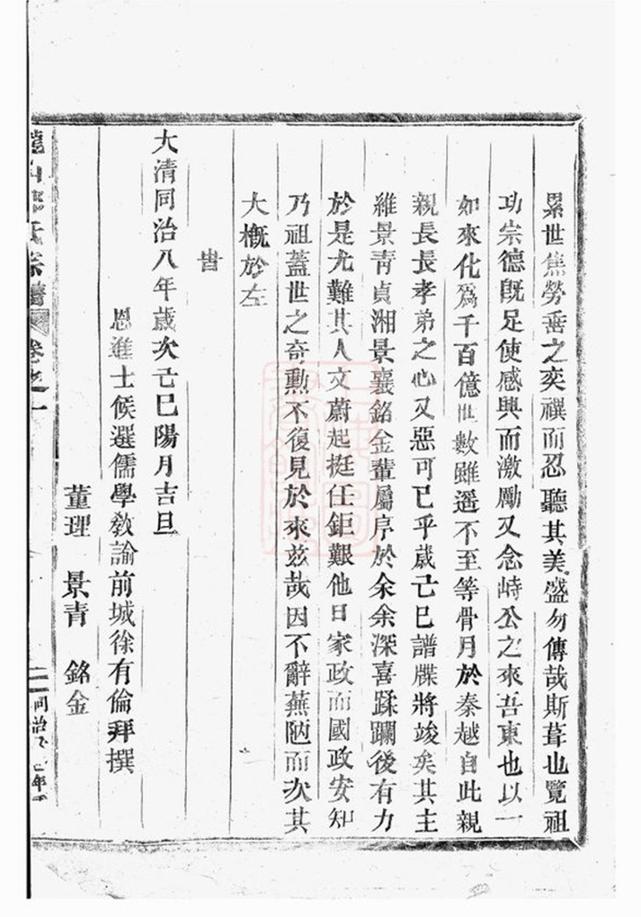 累世焦勞垂之奕禩而忍聽其美盛勿傳哉斯葺也覽祖
功宗德旣足使感興而激勵又念峙公之來吾東也以一
如來化爲千百億世數雖遥不至等骨月於秦越自此親
親長長孝弟之心又惡可已乎歲亡巳譜牒將竣矣其主
維景靑貞湘景襄銘金輩屬序於余余深喜蹂躝後有力
於是尤難其人文蔚起挺任鉅艱他日家政而國政安知
乃祖蓋世之奇勳不復見於來玆哉因不辭蕪陋而次其
大槪於左
旹
大淸同治八年歲次亡巳陽月吉旦
恩進士候選儒學敎諭前城徐有倫拜撰
董理 景靑 銘金
氏宗譜 卷之一 二 同治 年